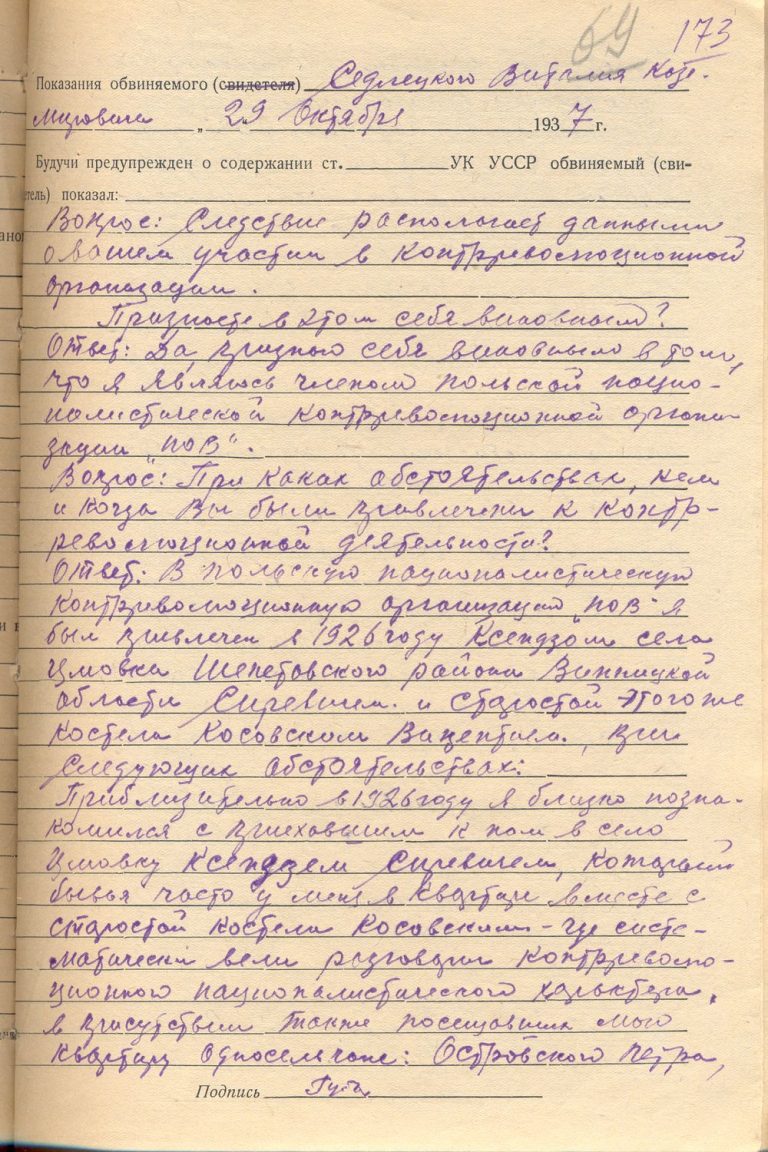 69 173
Показания обвиняемого (свидетеля) Седлецкого Виталия Кази-
мировича „ 29 Октября 1937 г.
Будучи предупрежден о содержании ст. УК УССР обвиняемый (сви-
етель) показал:
Вопрос: Следствие располагает данными
о вашем участии в контрреволюционной
организации.
Признаете в этом себя виновным?
Ответ: Да, признаю себя виновным в том,
что я являюсь членом польской нацио-
налистической контрреволюционной органи
зации „ПОВ".
Вопрос: При каких обстоятельствах, кем
и когда Вы были привлечены к контр-
революционной деятельности?
Ответ: В польскую националистическую
контрреволюционную организацию „ПОВ" я
был привлечен в 1926 году Ксендзом села
Шепетовского района Винницкой
области Сиревичем и старостой этого же
костела Косовским Вицентием, при
следующих обстоятельствах:
Приблизительно в 1926 году я близко позна-
комился с приехавшим к нам в село
Ксендзем Сиревичем, который
бывая часто у меня в квартире вместе с
старостой костела Косовским – где систе-
матически вели разговоры контрреволю-
ционного националистического характера,
в присутствии также посещавших мою
квартиру односельчане: Островского Петра,
Подпись